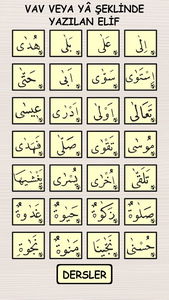 VAV VEYA YÂ ŞEKLİNDE
YAZILAN ELİF
اِلٰى عَلٰى بَلٰى هُدٰى
اِسْتَوٰى سَوّٰى اَبٰى حَتّٰى
تَعَالٰى اَوْلٰى اَدْرٰى عِيسٰى
مُوسٰى تَقْوٰى صَلّٰى فَهَدٰى
تَلَقّٰى اُخْرٰى يُسْرٰى
صَلٰوةٌ زَكٰوةٌ حَيٰوةٌ غَدٰوةٌ
حُسْنٰى مَنٰوةٌ نَجٰوةٌ
DERSLER